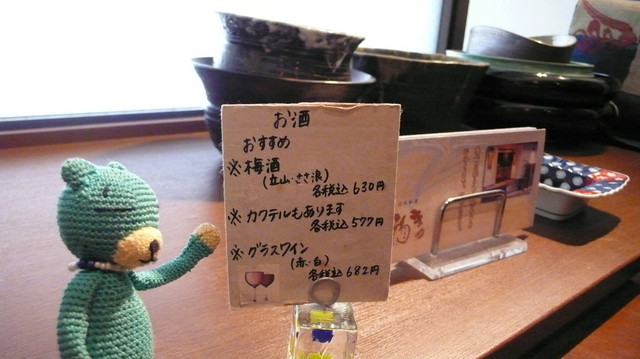 お酒
おすすめ
※梅酒
(立山・ささ浪)
各税込630円
※カクテルもあります
各税込577円
※グラスワイン
(赤・白)
各税込682円